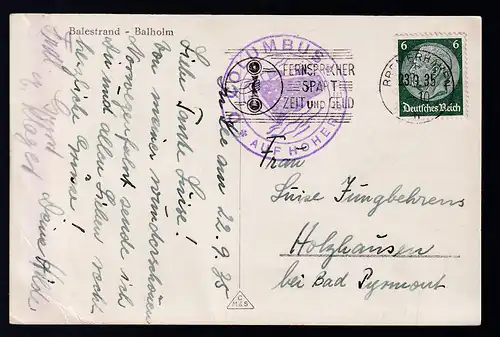 Balestrand - Balholm
Liebe Tante Luise!
Von meiner wunderschönen
Norwegenfahrt sende ich
Dir und allen Lieben recht
herzliche Grüsse!
Deine
22.9.35
COLUMBUS
* AUF HOHER
FERNSPRECHER
SPART
ZEIT UND GELD
BREMERHAVEN
6 6
Deutsches Reich
Frau
Luise Jungbehrens
Holzhausen
bei Bad Pyrmont
C
M&S